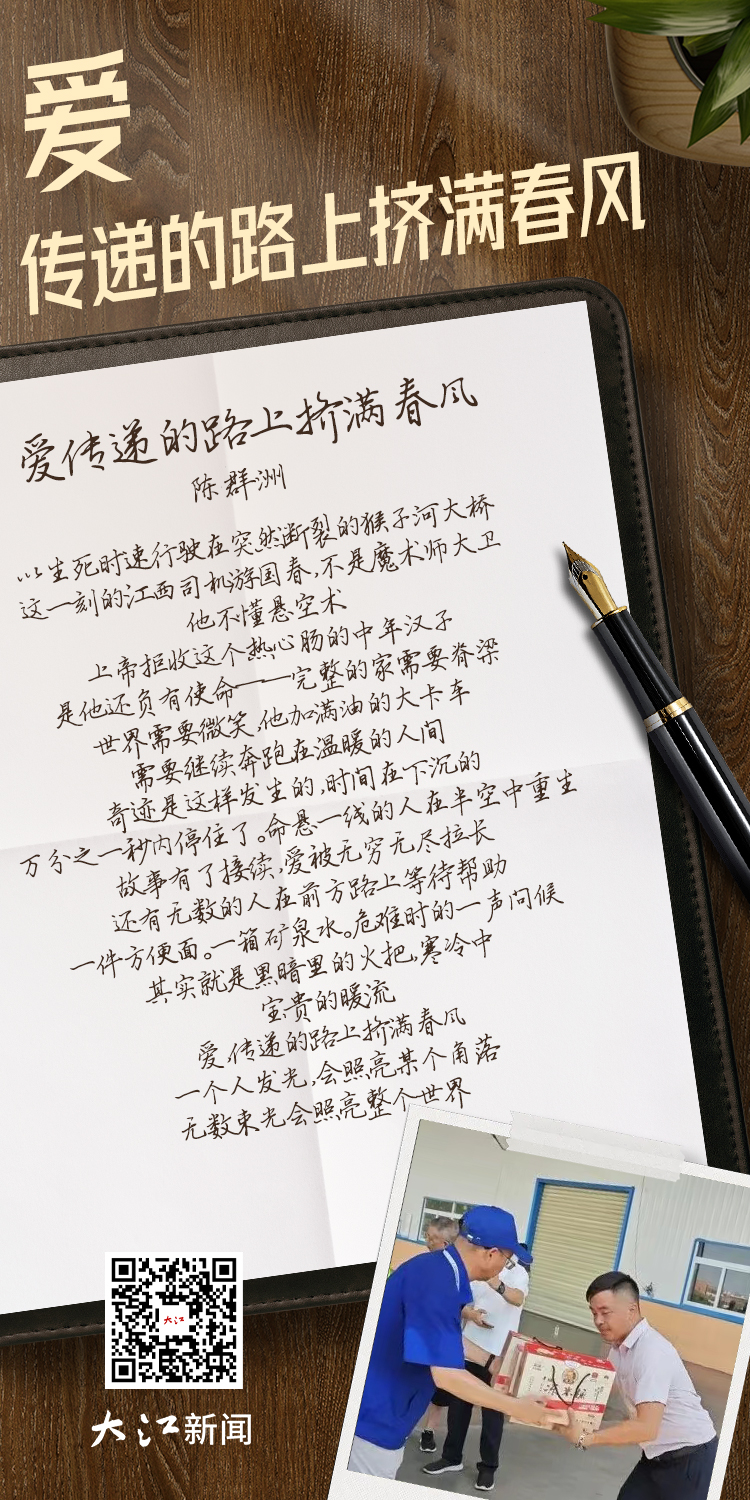 爱
传递的路上挤满春风
爱传递的路上挤满春风
陈群洲
以生死时速行驶在突然断裂的猴子河大桥
这一刻的江西司机游国春,不是魔术师大卫
他不懂悬空术
上帝拒收这个热心肠的中年汉子
是他还负有使命——完整的家需要脊梁
世界需要微笑,他加满油的大卡车
需要继续奔跑在温暖的人间
奇迹是这样发生的,时间在下沉的
万分之一秒内停住了。命悬一线的人在半空中重生
故事有了接续,爱被无穷无尽拉长
还有无数的人在前方路上等待帮助
一件方便面。一箱矿泉水。危难时的一声问候
其实就是黑暗里的火把,寒冷中
宝贵的暖流
爱,传递的路上挤满春风
一个人发光,会照亮某个角落
无数束光会照亮整个世界
大江
大江新闻